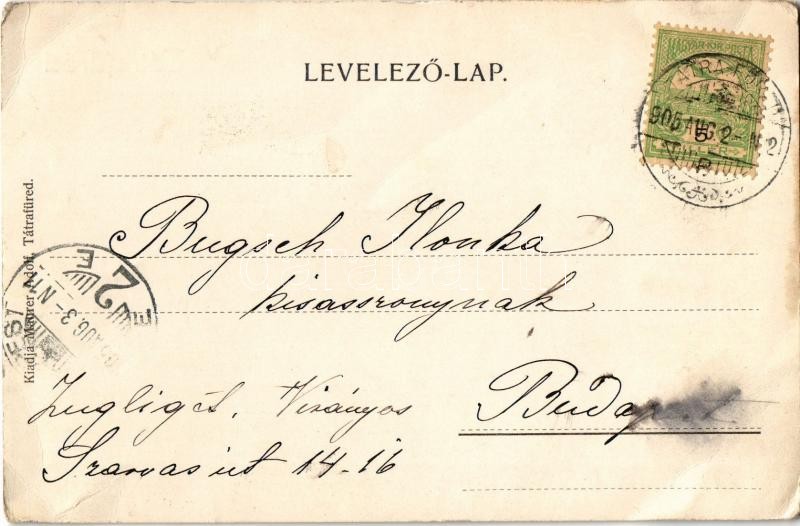 LEVELEZŐ-LAP.
MAGYAR KIR. POSTA
5
905 AUG 2
Bugsch Ilonka
kisasszonynak
Zugliget. Virányos Budap
Szarvas út 14-16
Kiadja Maurer Adolf, Tátrafüred.
AUG. 3
2
E